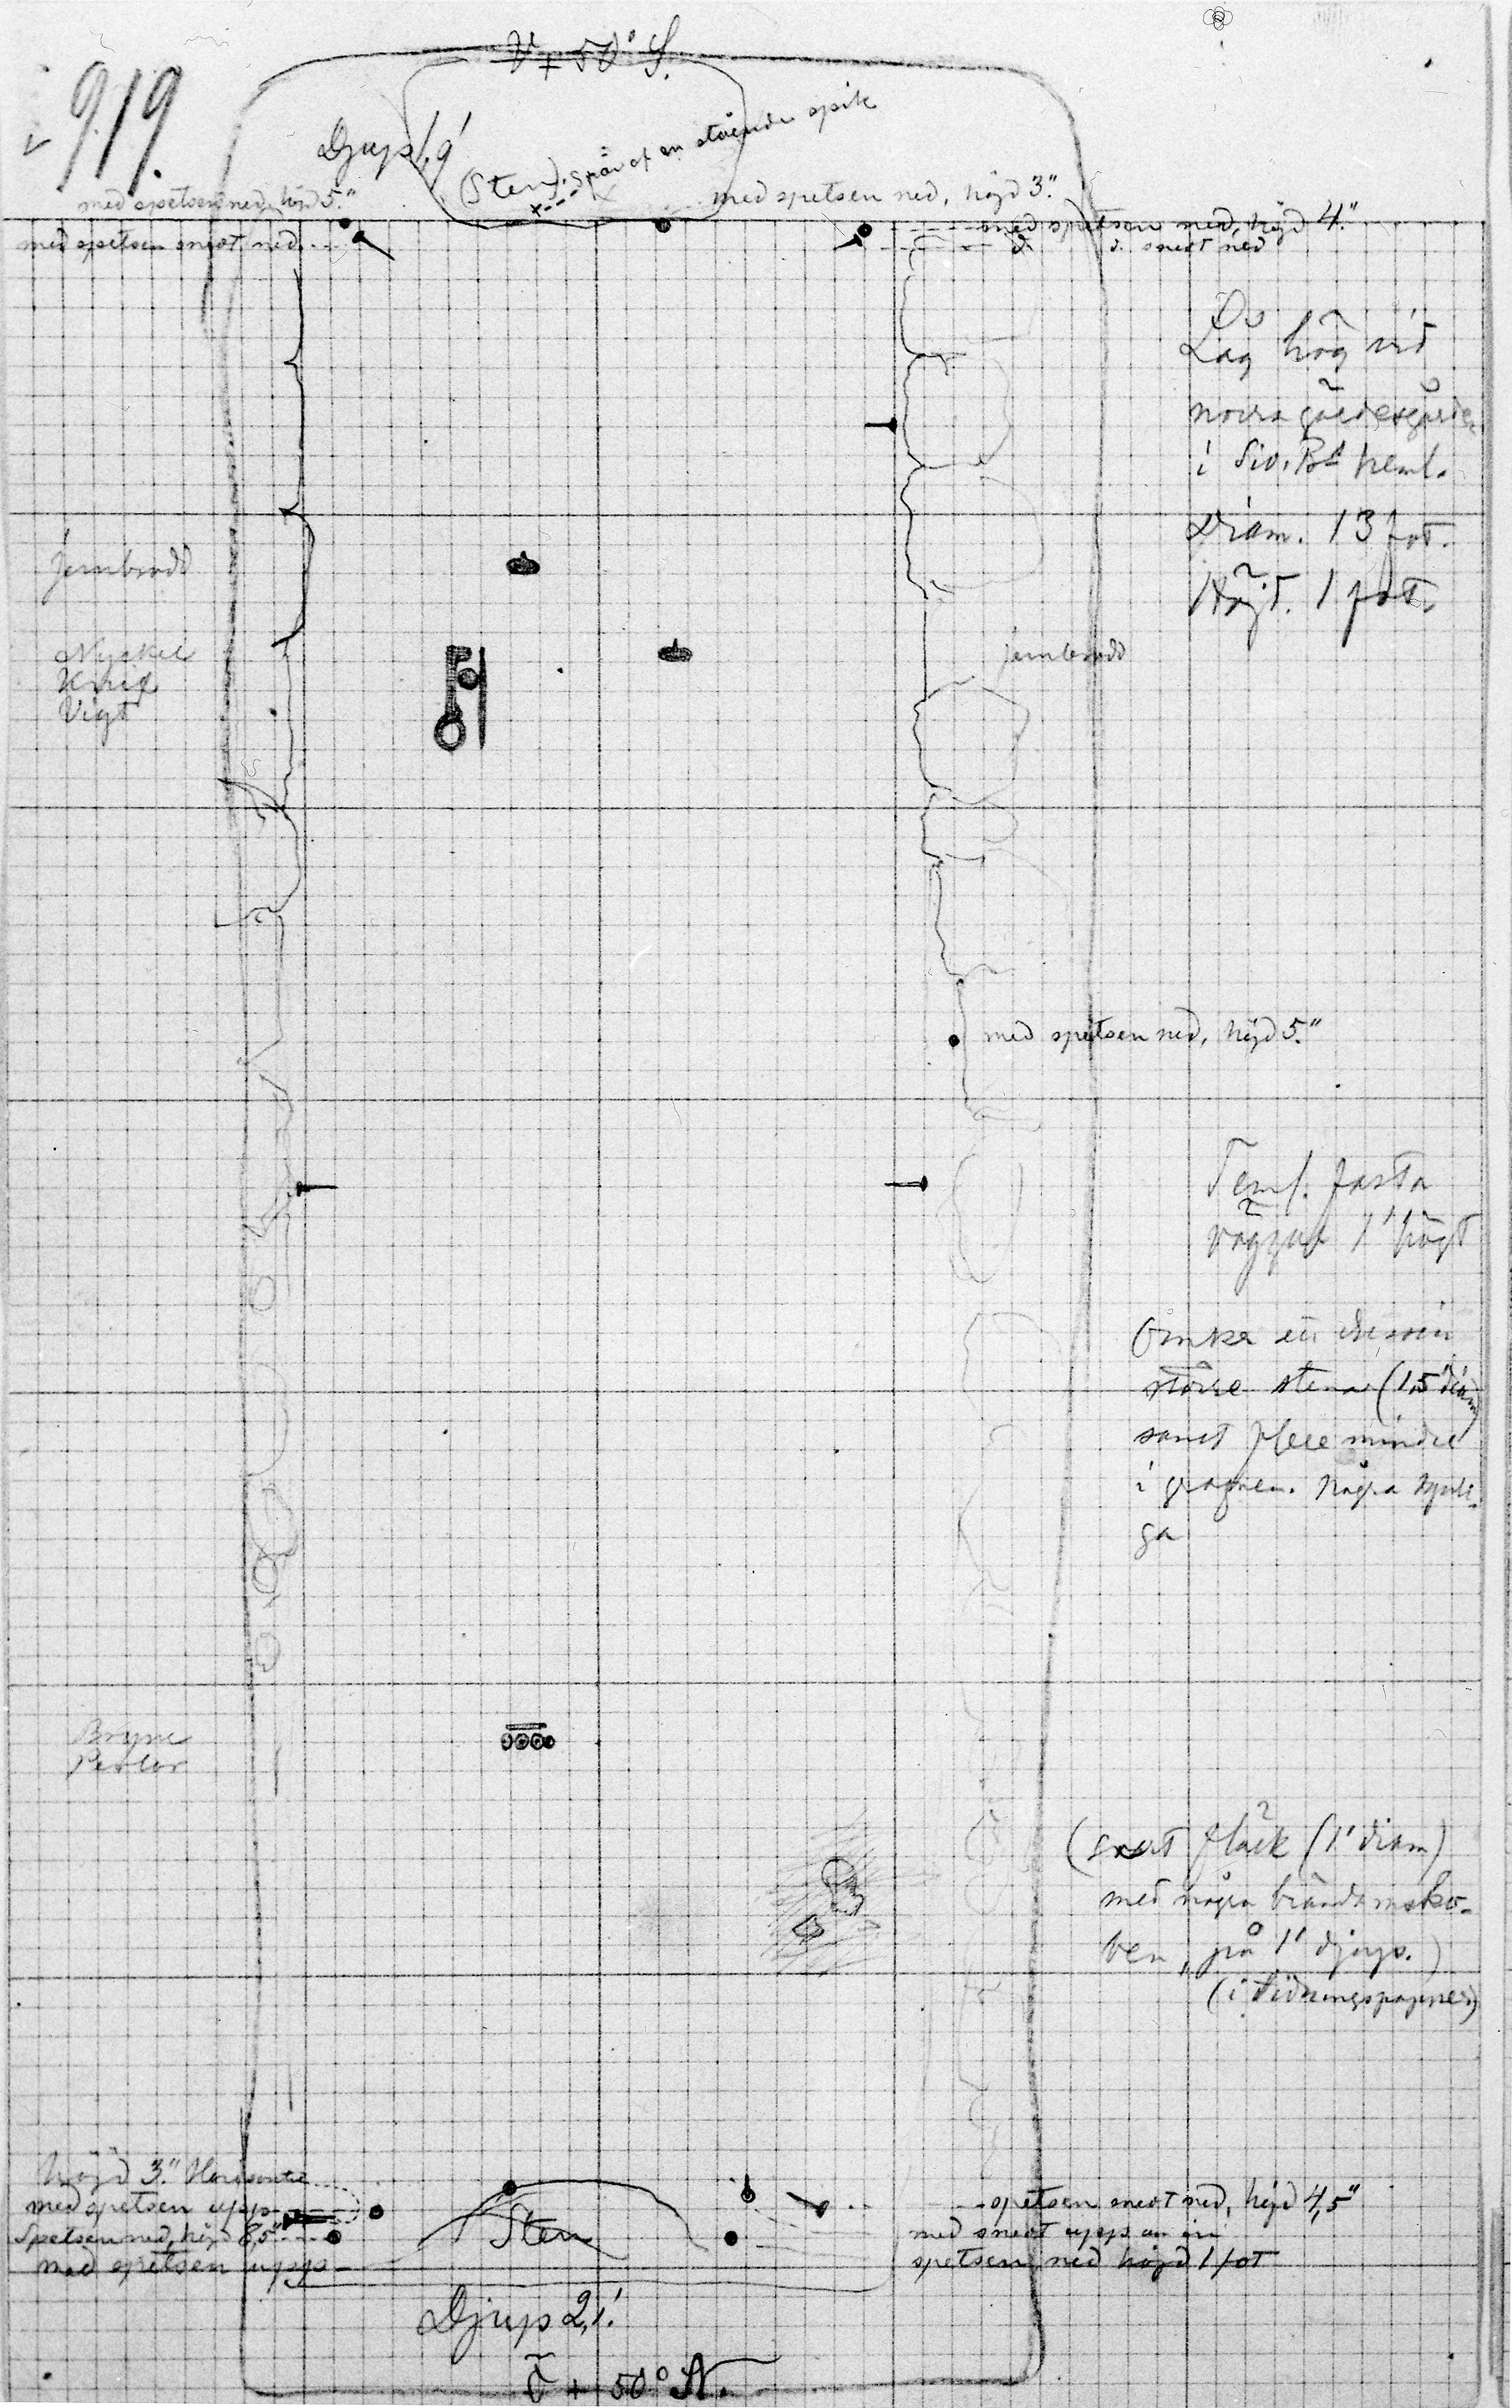 919.
V + 50° S.
Djup 1,9'
(Sten). spår af en stående spik
med spetsen ned, höjd 5."
med spetsen ned, höjd 3."
med spetsen snedt ned
med spetsen ned, höjd 4."
d. d. snedt ned
Låg hög vid
norra gärdesgården
i heml.
Diam. 13 fot.
Höjd. 1 fot.
jernbrodd
Nyckel
Knif
Vigt
jernbrodd
med spetsen ned, höjd 5."
Teml. fasta
väggar 1' högt
större stenar (1,5' diam)
samt flere mindre
i grafven. Några
ga
Bryne
Perlor
(svart fläck (1' diam)
med några brända
ben, på 1' djup.)
(i tidningspapper)
höjd 3." Horisontel
med spetsen upp
Spetsen ned, höjd 8,5"
med spetsen upp
Sten
spetsen snedt ned, höjd 4,5"
med snedt upp
spetsen ned höjd 1 fot
Djup 2,1'
Ö + 50° N.